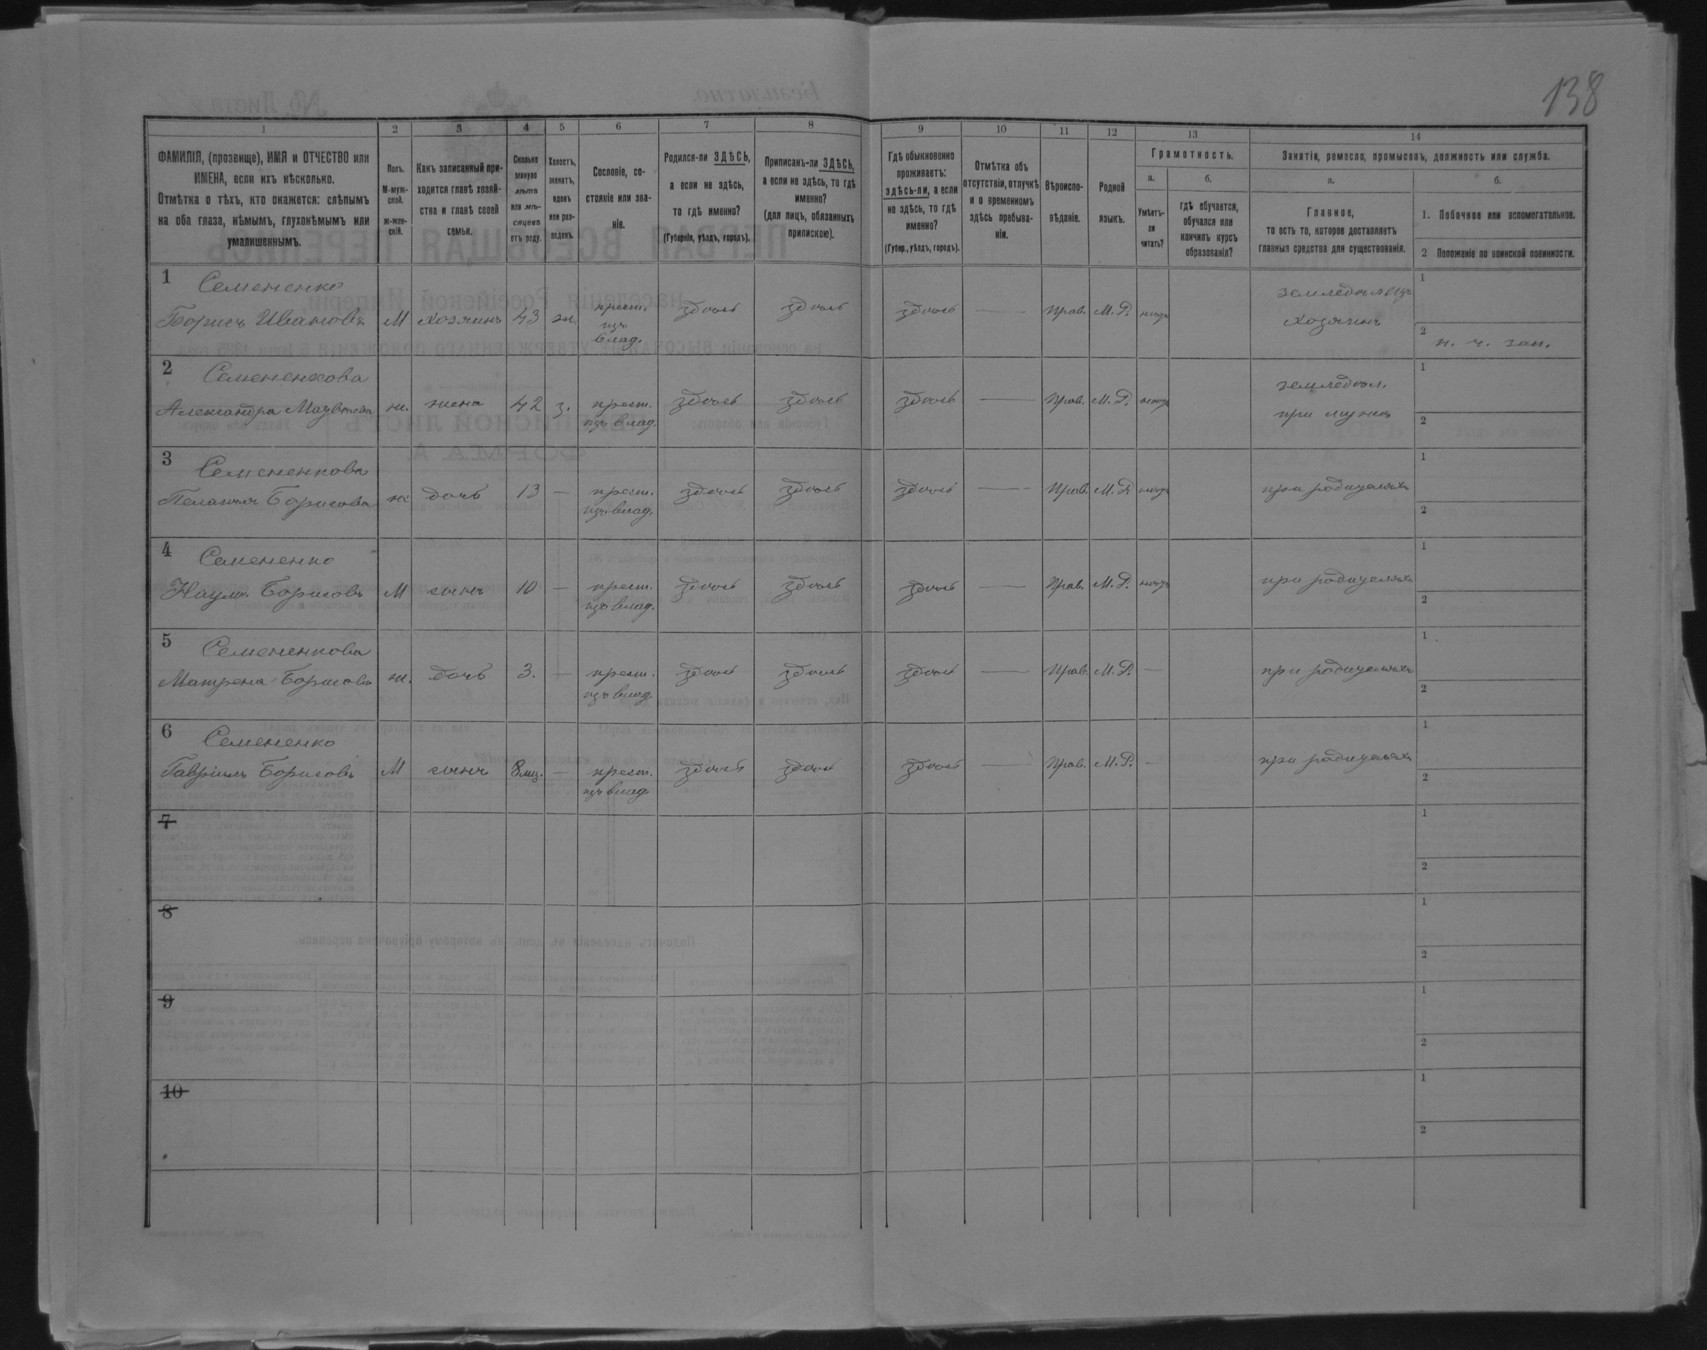 138
1 2 3 4 5 6 7 8 9 10 11 12 13 14
ФАМИЛІЯ, (прозвище), ИМЯ и ОТЧЕСТВО или
ИМЕНА, если ихъ нѣсколько.
Отмѣтка о тѣхъ, кто окажется: слѣпымъ
на оба глаза, нѣмымъ, глухонѣмымъ или
умалишеннымъ.
Полъ.
М-муж-
ской.
ж-жен-
скій.
Какъ записанный при-
ходится главѣ хозяй-
ства и главѣ своей
семьи.
Сколько
минуло
лѣтъ
или мѣ-
сяцевъ
отъ роду.
Холостъ,
женатъ,
вдовъ
или раз-
веденъ.
Сословіе, со-
стояніе или зва-
ніе.
Родился-ли ЗДѢСЬ,
а если не здѣсь,
то гдѣ именно?
(Губернія, уѣздъ, городъ).
Приписанъ-ли ЗДѢСЬ,
а если не здѣсь, то гдѣ
именно?
(для лицъ, обязанныхъ
припискою).
Гдѣ обыкновенно
проживаетъ:
здѣсь-ли, а если
не здѣсь, то гдѣ
именно?
(Губер., уѣздъ, городъ).
Отмѣтка объ
отсутствіи, отлучкѣ
и о временномъ
здѣсь пребыва-
ніи.
Вѣроиспо-
вѣданіе.
Родной
языкъ.
Грамотность.
а.
Умѣетъ-
ли
читать?
б.
гдѣ обучается,
обучался или
кончилъ курсъ
образованія?
Занятія, ремесло, промыселъ, должность или служба.
а.
Главное,
то есть то, которое доставляетъ
главныя средства для существованія.
б.
1. Побочное или вспомогательное.
2 Положеніе по воинской повинности.
1 Семененко
Борисъ Ивановъ М хозяинъ 43 ж. крест. изъ влад. здѣсь здѣсь здѣсь — Прав. М.Р. нѣтъ земледѣлецъ хозяинъ 1
2 н. ч. зап.
2 Семененкова
Александра ж. жена 42 з. крест. изъ влад. здѣсь здѣсь здѣсь — Прав. М.Р. нѣтъ земледѣл. при мужѣ 1
2
3 Семененкова
Пелагея Борисова ж. дочь 13 — крест. изъ влад. здѣсь здѣсь здѣсь — Прав. М.Р. нѣтъ при родителяхъ 1
2
4 Семененко
Наумъ Борисовъ М сынъ 10 — крест. изъ влад. здѣсь здѣсь здѣсь — Прав. М.Р. нѣтъ при родителяхъ 1
2
5 Семененкова
Матрена Борисова ж. дочь 3. — крест. изъ влад. здѣсь здѣсь здѣсь — Прав. М.Р. — при родителяхъ 1
2
6 Семененко
Гавріилъ Борисовъ М сынъ 8 мц. — крест. изъ влад. здѣсь здѣсь здѣсь — Прав. М.Р. — при родителяхъ 1
2
7 1
2
8 1
2
9 1
2
10 1
2